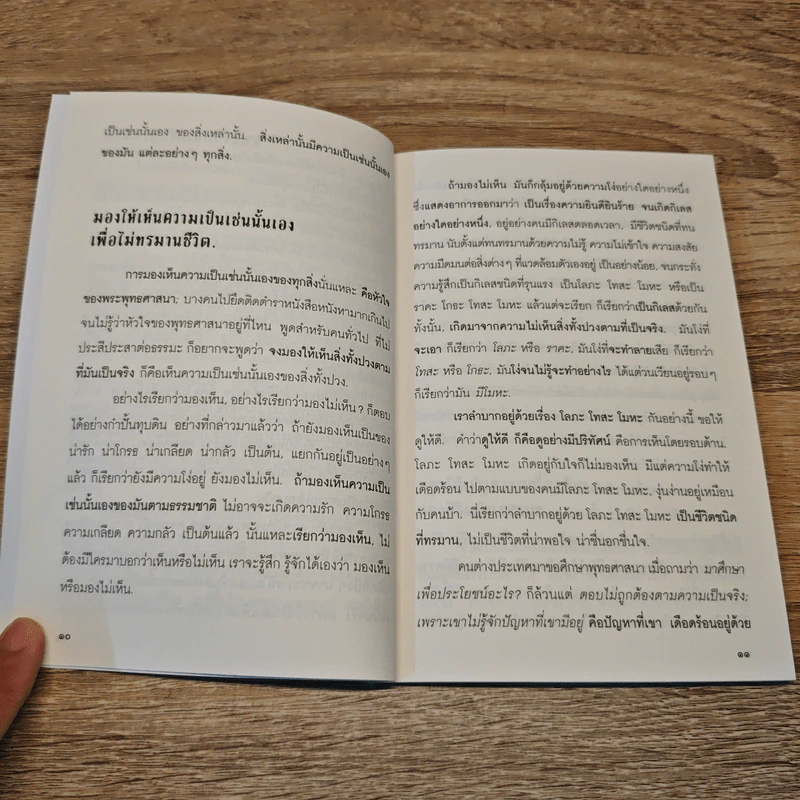 เป็นเช่นนั้นเอง ของสิ่งเหล่านั้น. สิ่งเหล่านั้นมีความเป็นเช่นนั้นเอง
ของมัน แต่ละอย่างๆ ทุกสิ่ง.
มองให้เห็นความเป็นเช่นนั้นเอง
เพื่อไม่ทรมานชีวิต.
การมองเห็นความเป็นเช่นนั้นเองของทุกสิ่งนั่นแหละ คือหัวใจ
ของพระพุทธศาสนา; บางคนไปยึดติดตำราหนังสือหนังหามากเกินไป
จนไม่รู้ว่าหัวใจของพุทธศาสนาอยู่ที่ไหน พูดสำหรับคนทั่วไป ที่ไม่
ประสีประสาต่อธรรมะ ก็อยากจะพูดว่า จงมองให้เห็นสิ่งทั้งปวงตาม
ที่มันเป็นจริง ก็คือเห็นความเป็นเช่นนั้นเองของสิ่งทั้งปวง.
อย่างไรเรียกว่ามองเห็น, อย่างไรเรียกว่ามองไม่เห็น? ก็ตอบ
ได้อย่างกำปั้นทุบดิน อย่างที่กล่าวมาแล้วว่า ถ้ายังมองเห็นเป็นของ
น่ารัก น่าโกรธ น่าเกลียด น่ากลัว เป็นต้น, แยกกันอยู่เป็นอย่างๆ
แล้ว ก็เรียกว่ายังมีความโง่อยู่ ยังมองไม่เห็น. ถ้ามองเห็นความเป็น
เช่นนั้นเองของมันตามธรรมชาติ ไม่อาจจะเกิดความรัก ความโกรธ
ความเกลียด ความกลัว เป็นต้นแล้ว นั้นแหละเรียกว่ามองเห็น, ไม่
ต้องมีใครมาบอกว่าเห็นหรือไม่เห็น เราจะรู้สึก รู้จักได้เองว่า มองเห็น
หรือมองไม่เห็น.
๑๐
ถ้ามองไม่เห็น มันก็กลุ้มอยู่ด้วยความโง่อย่างใดอย่างหนึ่ง
ซึ่งแสดงอาการออกมาว่า เป็นเรื่องความยินดียินร้าย จนเกิดกิเลส
อย่างใดอย่างหนึ่ง. อยู่อย่างคนมีกิเลสตลอดเวลา, มีชีวิตชนิดที่ทน
ทรมาน นับตั้งแต่ทนทรมานด้วยความไม่รู้ ความไม่เข้าใจ ความสงสัย
ความมืดมนต่อสิ่งต่างๆ ที่แวดล้อมตัวเองอยู่ เป็นอย่างน้อย, จนกระทั่ง
ความรู้สึกเป็นกิเลสชนิดที่รุนแรง เป็นโลภะ โทสะ โมหะ หรือเป็น
ราคะ โกธะ โทสะ โมหะ แล้วแต่จะเรียก ก็เรียกว่าเป็นกิเลสด้วยกัน
ทั้งนั้น. เกิดมาจากความไม่เห็นสิ่งทั้งปวงตามที่เป็นจริง. มันโง่ที่
จะเอา ก็เรียกว่า โลภะ หรือ ราคะ, มันโง่ที่จะทำลายเสีย ก็เรียกว่า
โทสะ หรือ โกธะ, มันโง่จนไม่รู้จะทำอย่างไร ได้แต่วนเวียนอยู่รอบๆ
ก็เรียกว่ามัน มีโมหะ.
เราลำบากอยู่ด้วยเรื่อง โลภะ โทสะ โมหะ กันอย่างนี้ ขอให้
ดูให้ดี. คำว่าดูให้ดี ก็คือดูอย่างมีปริทัศน์ คือการเห็นโดยรอบด้าน.
โลภะ โทสะ โมหะ เกิดอยู่กับใจก็ไม่มองเห็น มีแต่ความโง่ทำให้
เดือดร้อน ไปตามแบบของคนมีโลภะ โทสะ โมหะ, งุ่นง่านอยู่เหมือน
กับคนบ้า. นี่เรียกว่าลำบากอยู่ด้วย โลภะ โทสะ โมหะ เป็นชีวิตชนิด
ที่ทรมาน, ไม่เป็นชีวิตที่น่าพอใจ น่าชื่นอกชื่นใจ.
คนต่างประเทศมาขอศึกษาพุทธศาสนา เมื่อถามว่า มาศึกษา
เพื่อประโยชน์อะไร? ก็ล้วนแต่ ตอบไม่ถูกต้องตามความเป็นจริง;
เพราะเขาไม่รู้จักปัญหาที่เขามีอยู่ คือปัญหาที่เขา เดือดร้อนอยู่ด้วย
๑๑